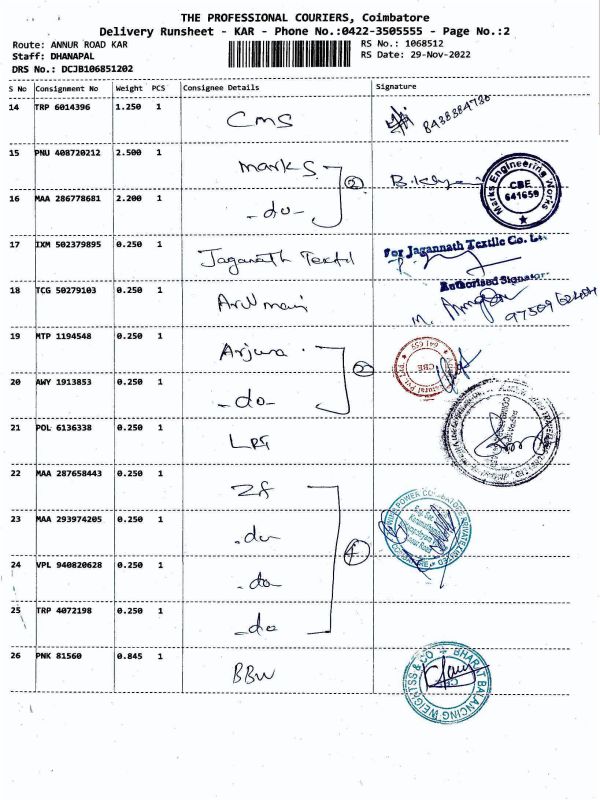 THE PROFESSIONAL COURIERS, Coimbatore
Delivery Runsheet - KAR - Phone No.:0422-3505555 - Page No.:2
Route: ANNUR ROAD KAR RS No.: 1068512
Staff: DHANAPAL RS Date: 29-Nov-2022
DRS No.: DCJB106851202
S No Consignment No Weight PCS Consignee Details Signature
14 TRP 6014396 1.250 1 CMS 8438384730
15 PNU 408720212 2.500 1 Marks
16 MAA 286778681 2.200 1 -do-
Marks Engineering Works
CBE
641659
17 IXM 502379895 0.250 1 Jaganath Textil
For Jagannath Textile Co.
Authorised Signator
18 TCG 50279103 0.250 1
19 MTP 1194548 0.250 1 Arjuna
20 AWY 1913853 0.250 1 -do-
CBE
21 POL 6136338 0.250 1
22 MAA 287658443 0.250 1 ZF
23 MAA 293974205 0.250 1 -do
24 VPL 940820628 0.250 1 -do
25 TRP 4072198 0.250 1 -do
26 PNK 81560 0.845 1 BBW
BHARAT BALANCING WEIGHTSS & CO